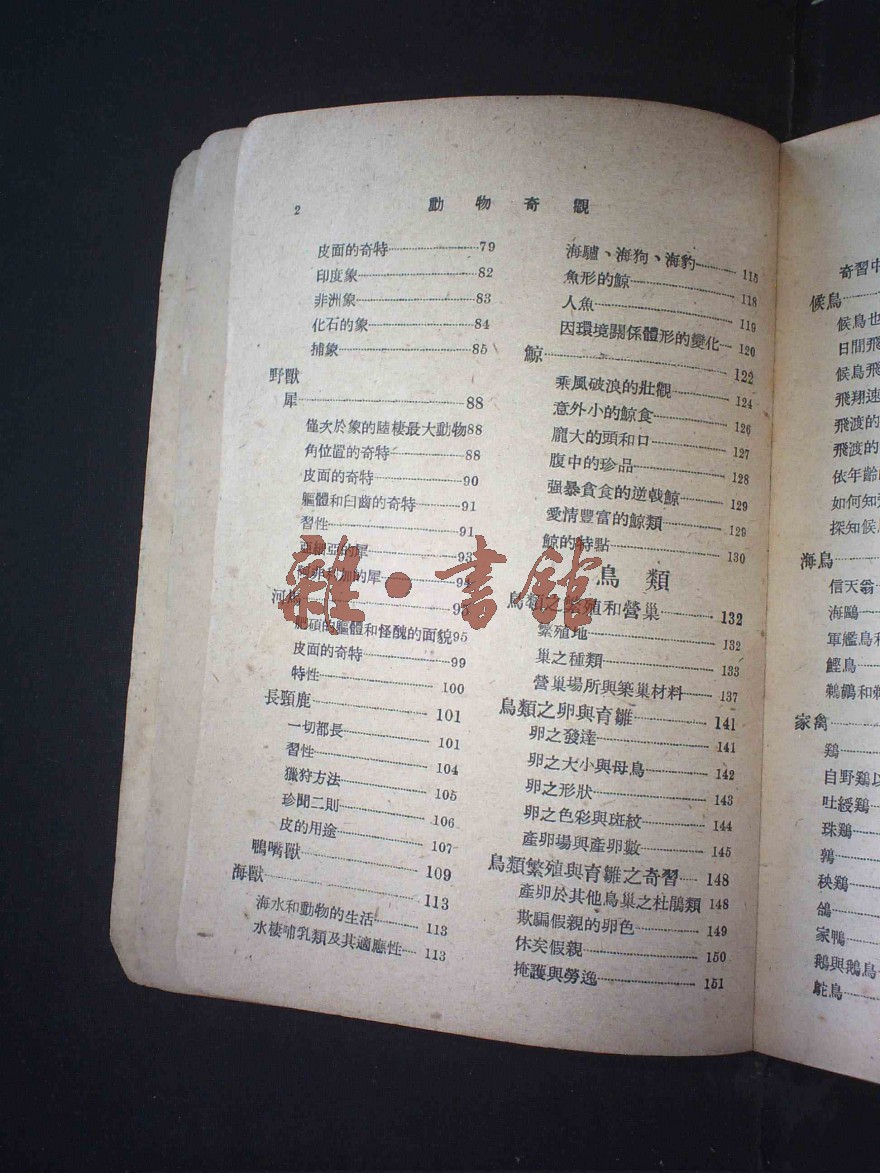 2 動物奇觀
皮面的奇特 79
印度象 82
非洲象 83
化石的象 84
捕象 85
野獸
犀 88
僅次於象的陸棲最大動物88
角位置的奇特 88
皮面的奇特 90
軀體和臼齒的奇特 91
習性 91
的犀 93
加的犀 94
河馬 95
肥碩的軀體和怪醜的面貌95
皮面的奇特 99
特性 100
長頸鹿 101
一切都長 101
習性 104
獵狩方法 105
珍聞二則 106
皮的用途 107
鴨嘴獸 109
海獸 113
海水和動物的生活 113
水棲哺乳類及其適應性 113
海驢、海狗、海豹 115
魚形的鯨 118
人魚 119
因環境關係體形的變化 120
鯨 122
乘風破浪的壯觀 124
意外小的鯨食 126
龐大的頭和口 127
腹中的珍品 128
强暴貪食的逆戟鯨 129
愛情豐富的鯨類 129
鯨的特點 130
鳥類
鳥類之繁殖和營巢 132
繁殖地 132
巢之種類 133
營巢場所與築巢材料 137
鳥類之卵與育雛 141
卵之發達 141
卵之大小與母鳥 142
卵之形狀 143
卵之色彩與斑紋 144
產卵場與產卵數 145
鳥類繁殖與育雛之奇習 148
產卵於其他鳥巢之杜鵑類 148
欺騙假親的卵色 149
休矣假親 150
掩護與勞逸 151
奇習中
候鳥
候鳥也
日間飛
候鳥飛
飛翔速
飛渡的
飛渡的
依年齡
如何知
探知候
海鳥
信天翁
海鷗
軍艦鳥和
鰹鳥
鵜鶘和
家禽
鷄
自野鷄以
吐綬鷄
珠鷄
鶉
秧鷄
鴿
家鴨
鵝與鵝鳥
鴕鳥
雜·書館